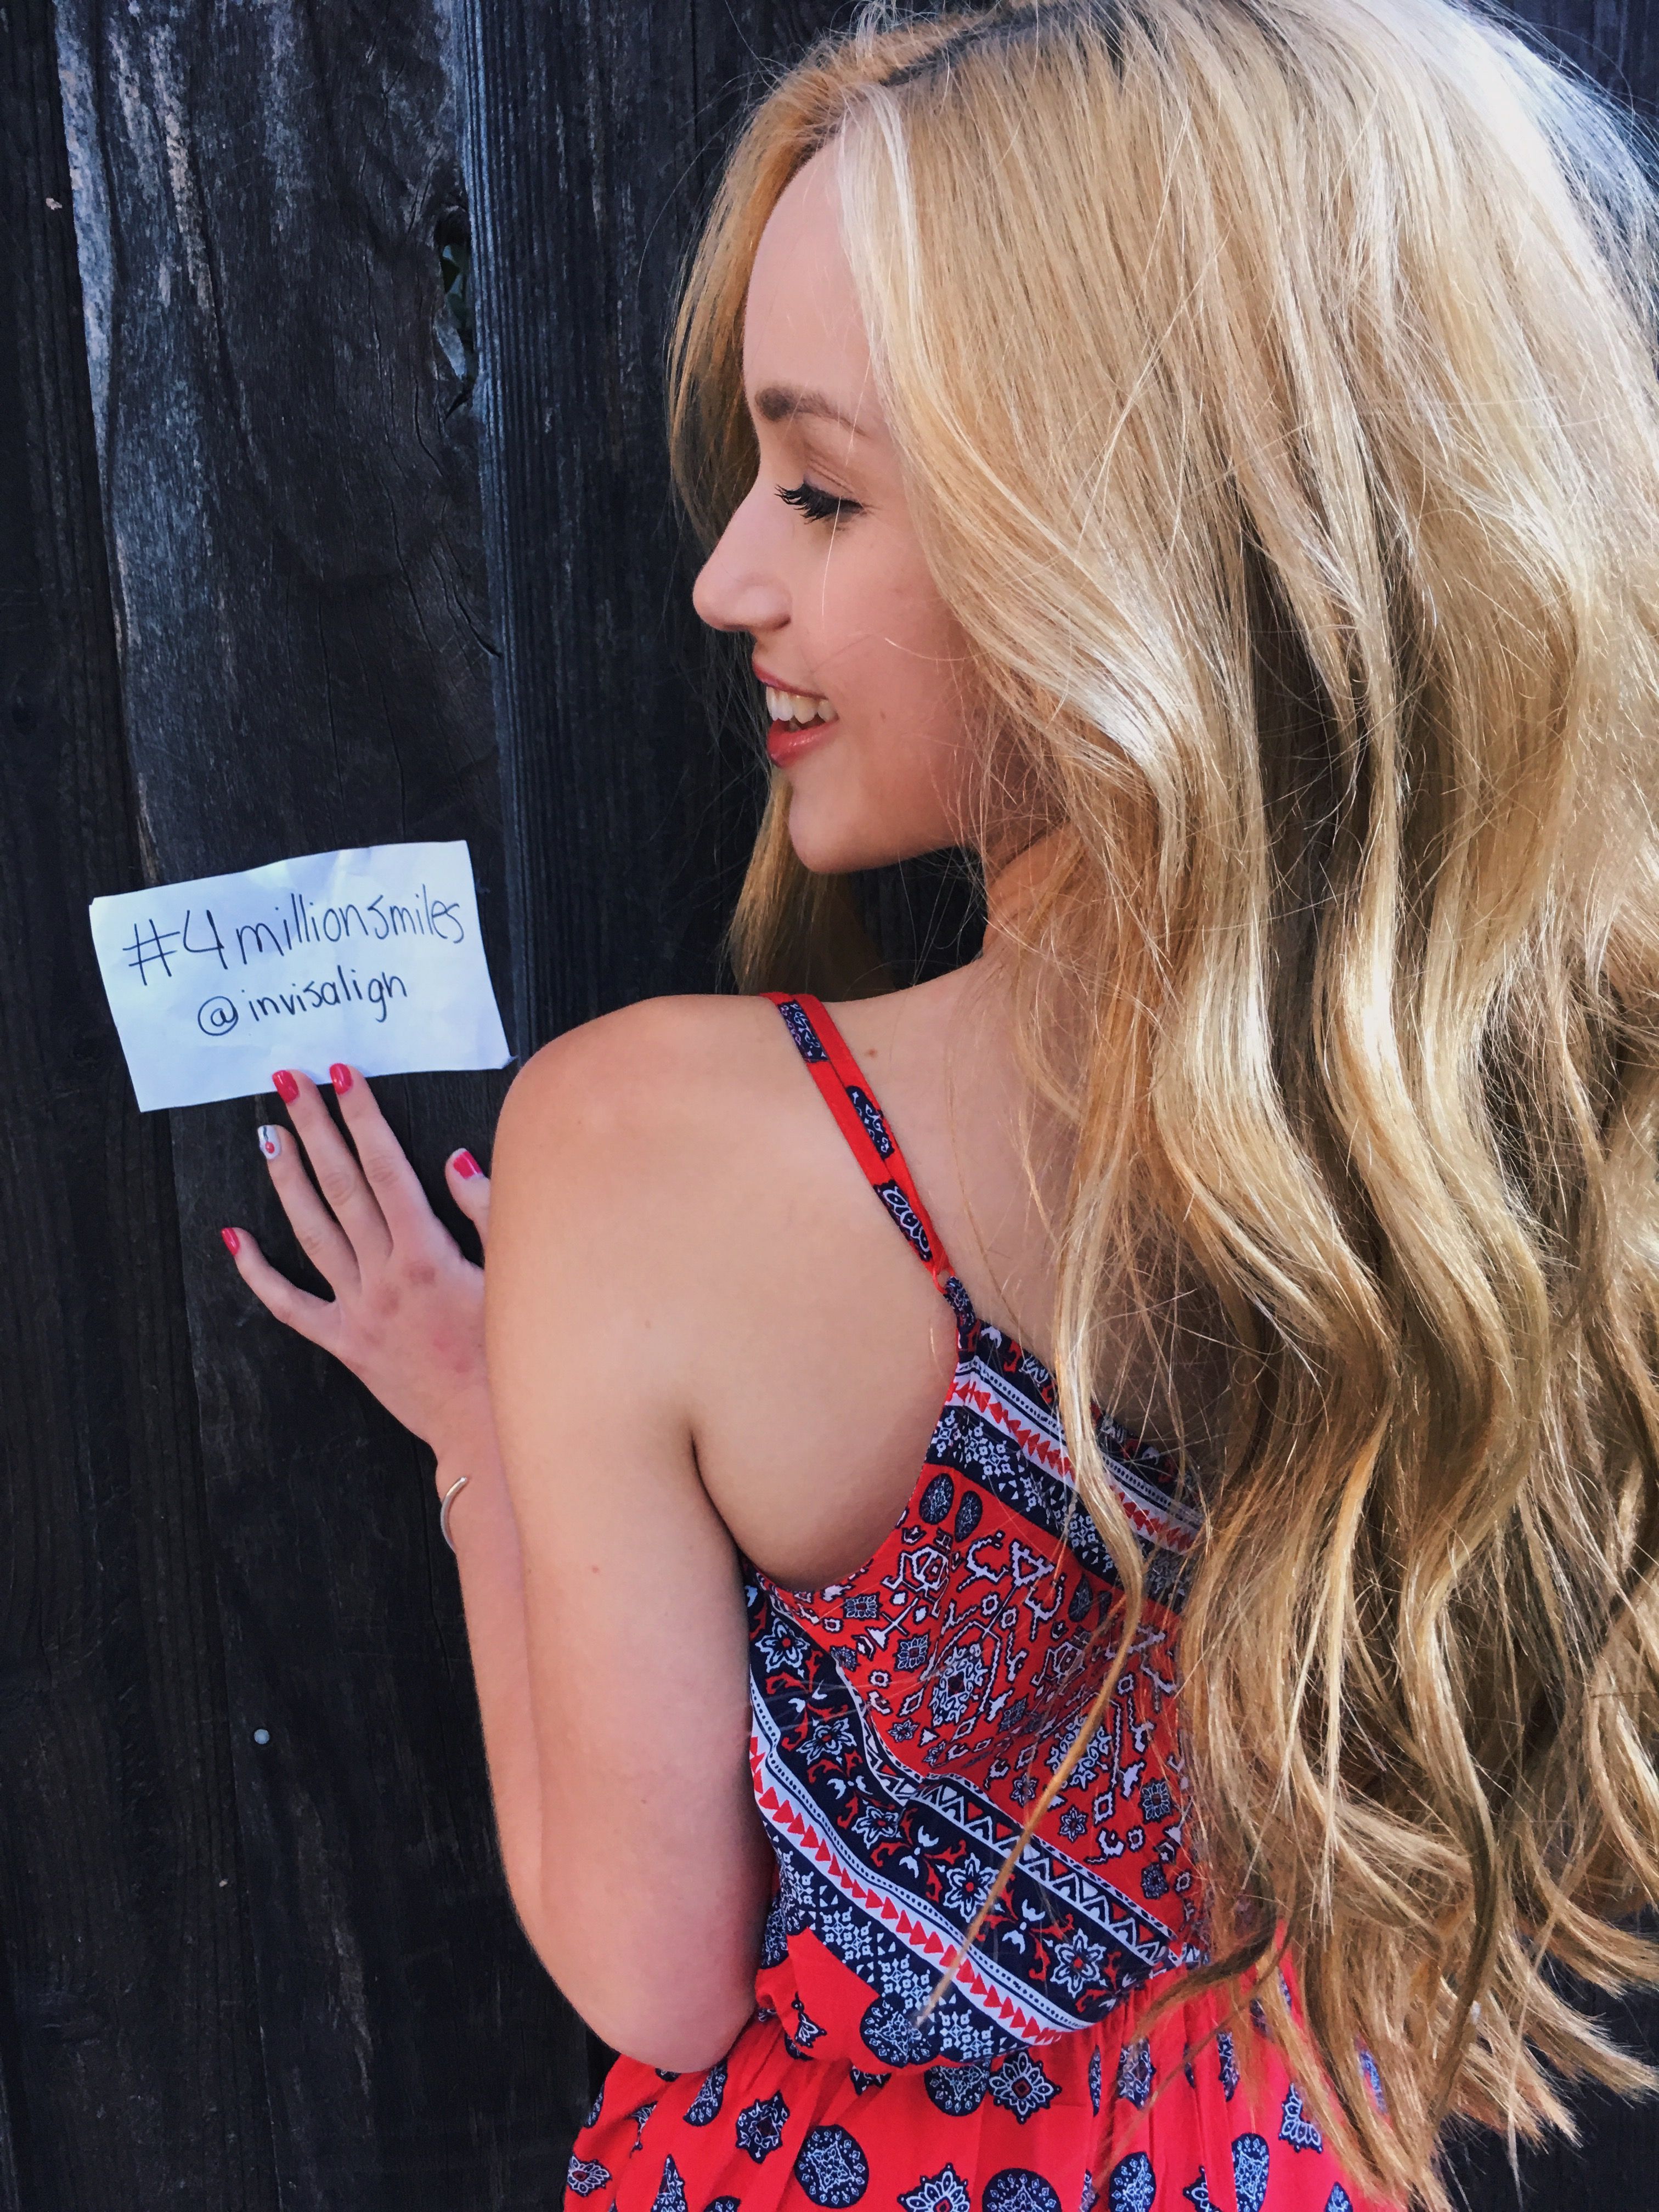 #4millionsmiles
@invisalign